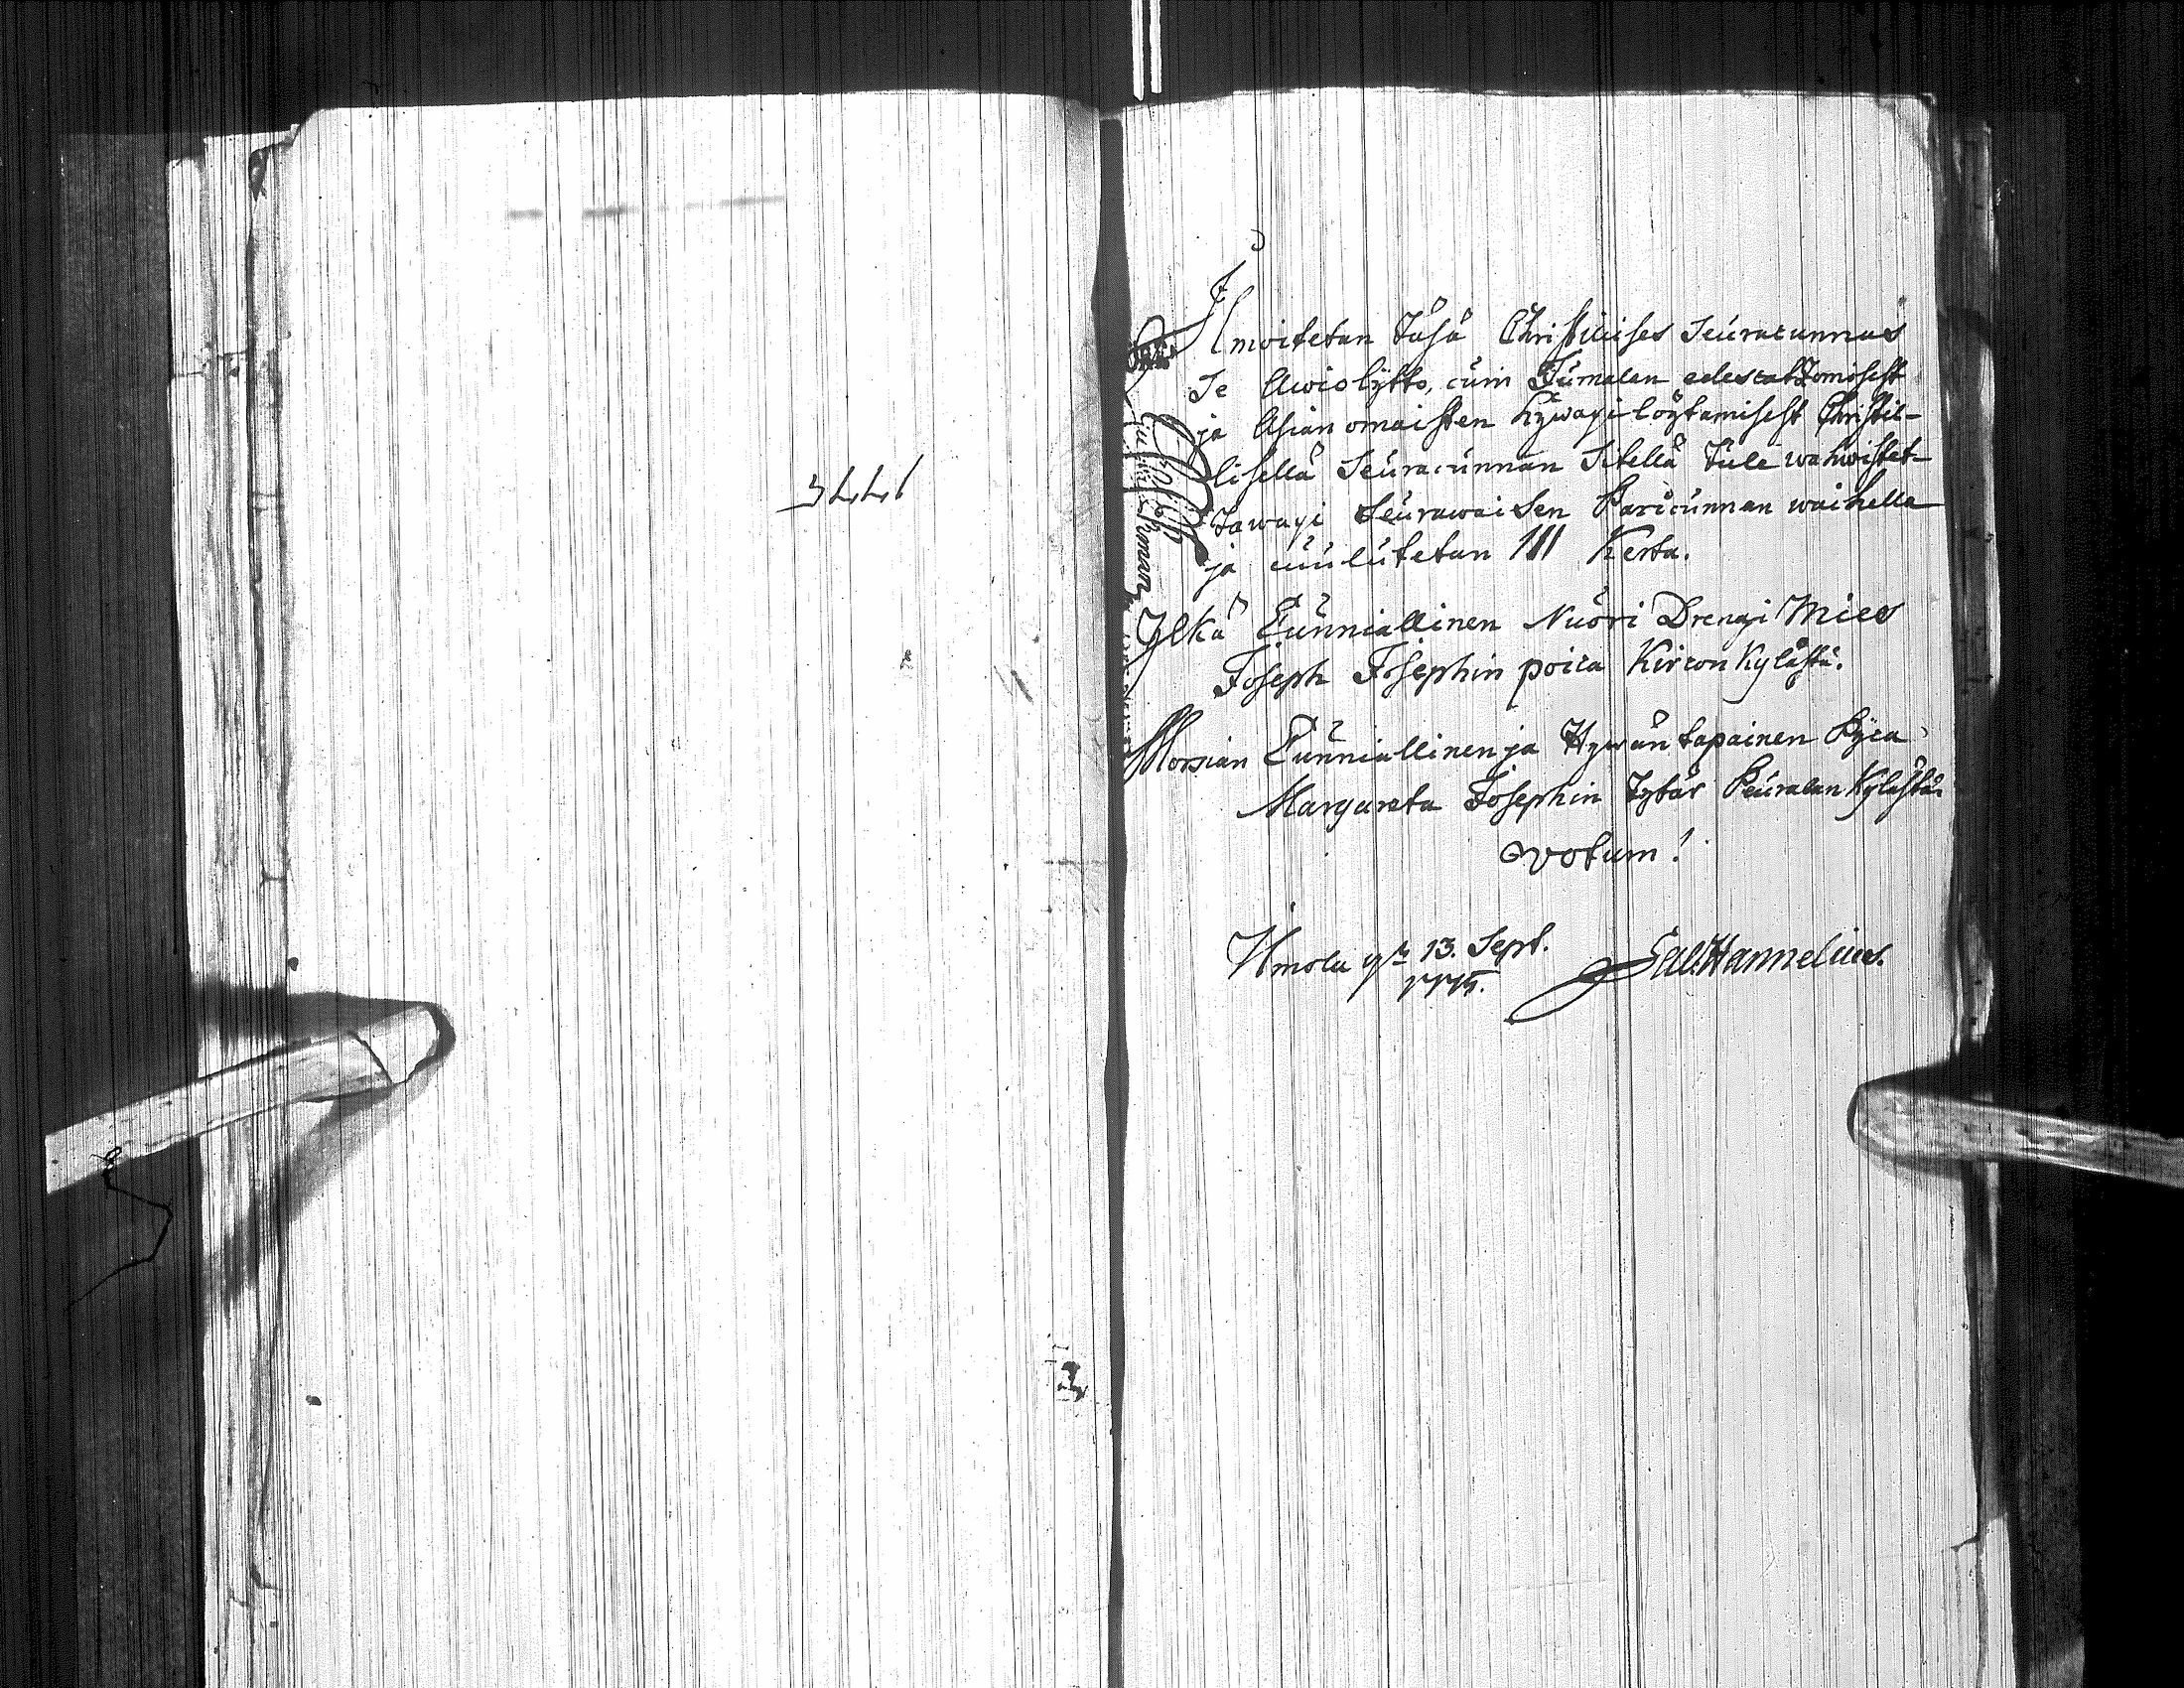 1775
Ilmoitetan täsä Christilises Seuracunnas
Se Awioskytko, cuin Jumalan edescatzomisest
ja Asianomaisten hywäxilöytämisest Christil-
lisellä Seuracunnan Sitellä tule wahwistet-
tawaxi Seurawaisen Paricunnan waihella
ja cuulutetan III Kerta.
Ylkä Cunniallinen Nuori Drengi Mies
Joseph Josephin poica Kircon Kylästä.
Morsian Cunniallinen ja Hywäntapainen Pijca
Margareta Josephin Tytär Peuralan Kylästä.
Votum!
Vimola 13. Sept.
1775.
Sal. Hannelius.